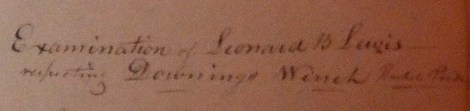 Examination of Leonard B Lewis
respecting Downings Winch